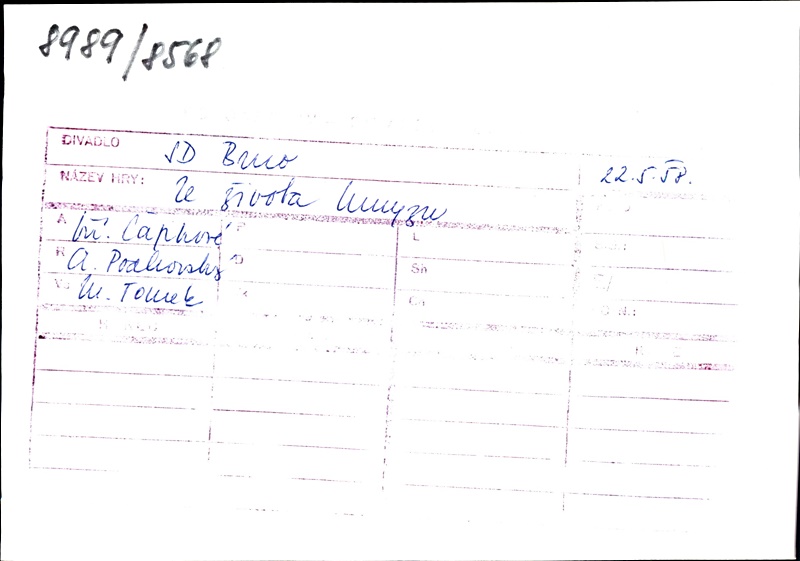 8989/8568
DIVADLO SD Brno 22.5.58.
NÁZEV HRY: Ze života hmyzu
A bří. Čapkové L
R A. Podhorský D Sn
M. Tomek Ch